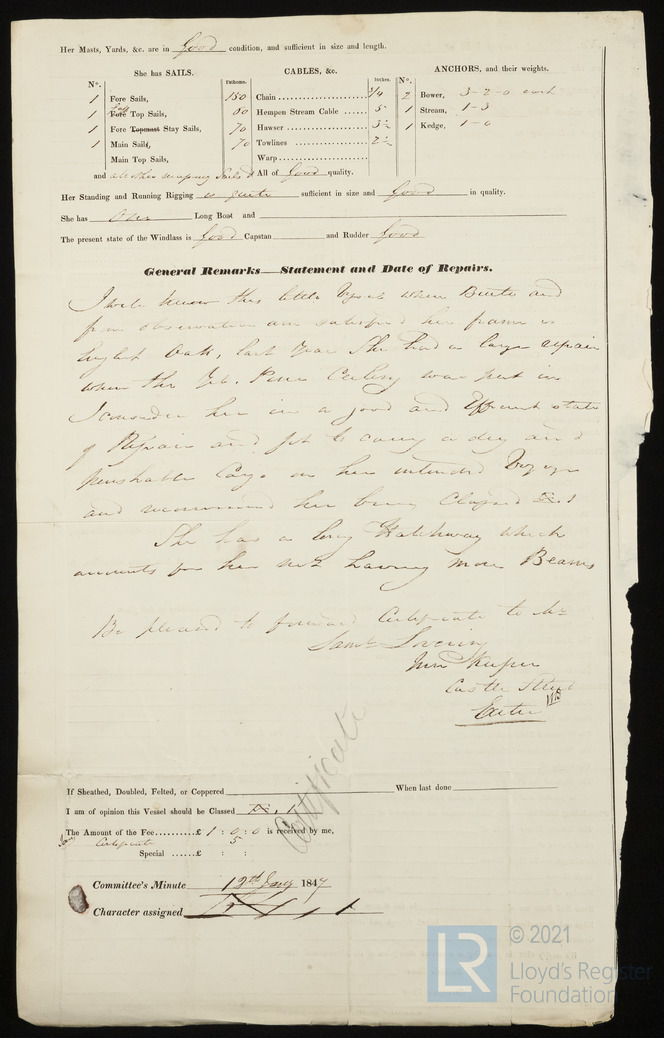 Her Masts, Yards, &c. are in Good condition, and sufficient in size and length.
She has SAILS. CABLES, &c. ANCHORS, and their weights.
No. Fathoms. Inches. No.
1 Fore Sails, 150 Chain 3/4 2 Bower, 3-2-0 each
1 Fore Top Sails, 80 Hempen Stream Cable 5 1 Stream, 1-3
1 Fore Topmast Stay Sails, 70 Hawser 3½ 1 Kedge, 1-0
1 Main Sails, 70 Towlines 2½
Main Top Sails, Warp
and all other necessary Sails All of Good quality.
Her Standing and Running Rigging is quite sufficient in size and Good in quality.
She has One Long Boat and
The present state of the Windlass is Good Capstan and Rudder Good
General Remarks—Statement and Date of Repairs.
I well know this little Vessel when Built and
from observation am satisfied her frame is
English Oak, last Year She had a large repair
when the Yel. Pine Ceiling was put in
I consider her in a good and Efficient state
of Repair and fit to carry a dry and
perishable Cargo on her intended Voyage
and recommend her being Classed 1
She has a long Hatchway which
accounts for her not having more Beams
Be pleased to forward Certificate to Mr
Saml Lovering
Inn Keeper
Castle Street
Exeter
Certificate
If Sheathed, Doubled, Felted, or Coppered When last done
I am of opinion this Vessel should be Classed 1
The Amount of the Fee £ 1 : 0 : 0 is received by me,
Certificate 5
Special £ : :
Committee's Minute 12th Jany 1847
Character assigned 1
© 2021
LR Lloyd's Register
Foundation